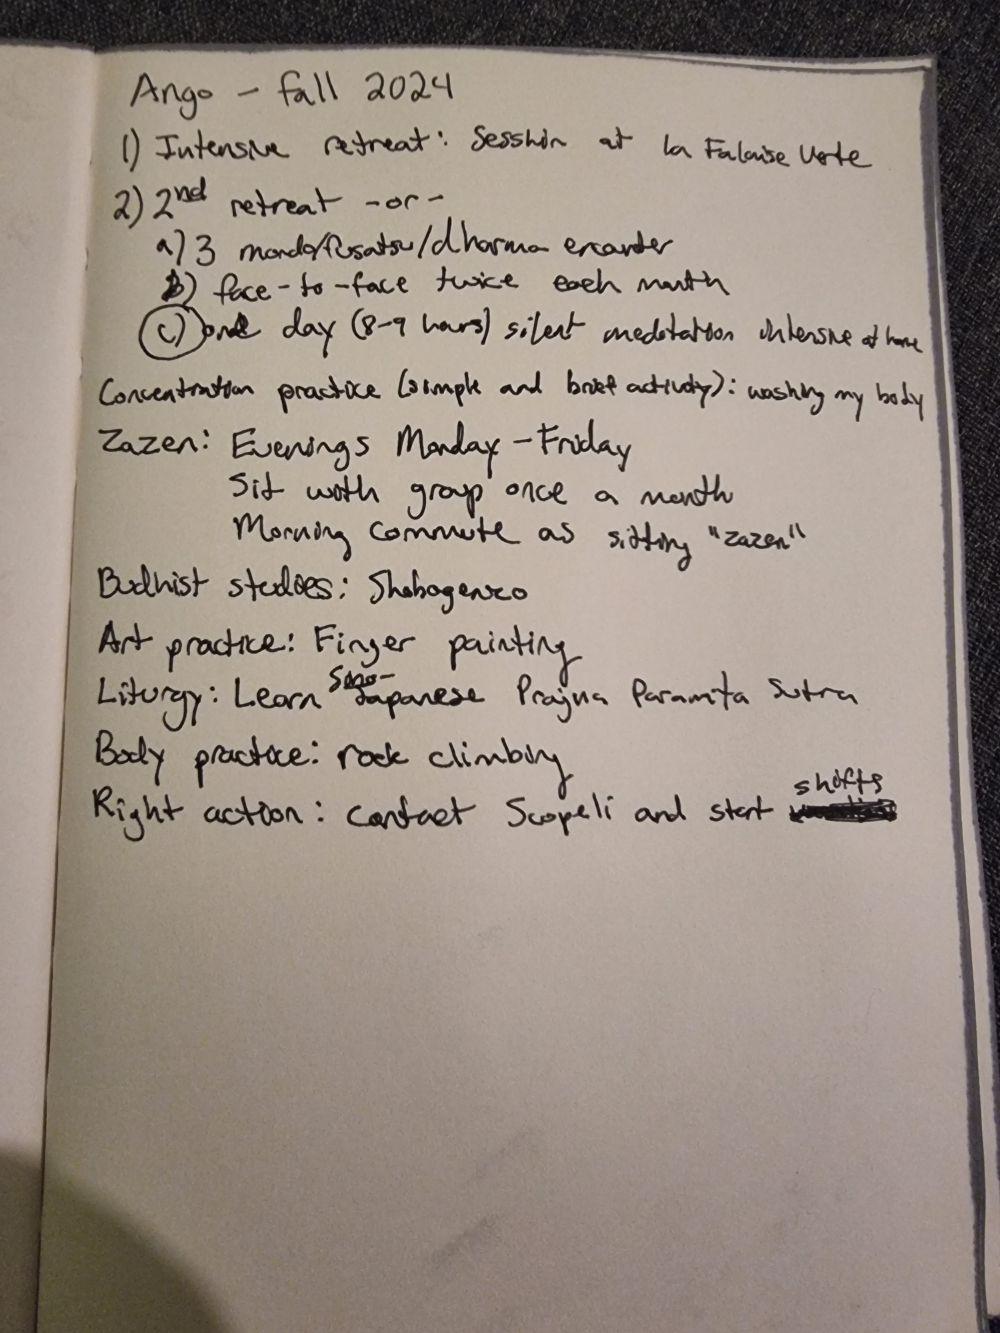 Ango - fall 2024
1) Intensive retreat: Sesshin at La Falaise Verte
2) 2nd retreat -or-
a) 3 mondo/fusatsu/dharma encounter
b) face-to-face twice each month
c) one day (8-9 hours) silent meditation intensive at home
Concentration practice (simple and brief activity): washing my body
Zazen: Evenings Monday - Friday
Sit with group once a month
Morning commute as sitting "zazen"
Budhist studies: Shobogenzo
Art practice: Finger painting
Liturgy: Learn Sino-Japanese Prajna Paramita Sutra
Body practice: rock climbing
Right action: contact Scopeli and start shifts